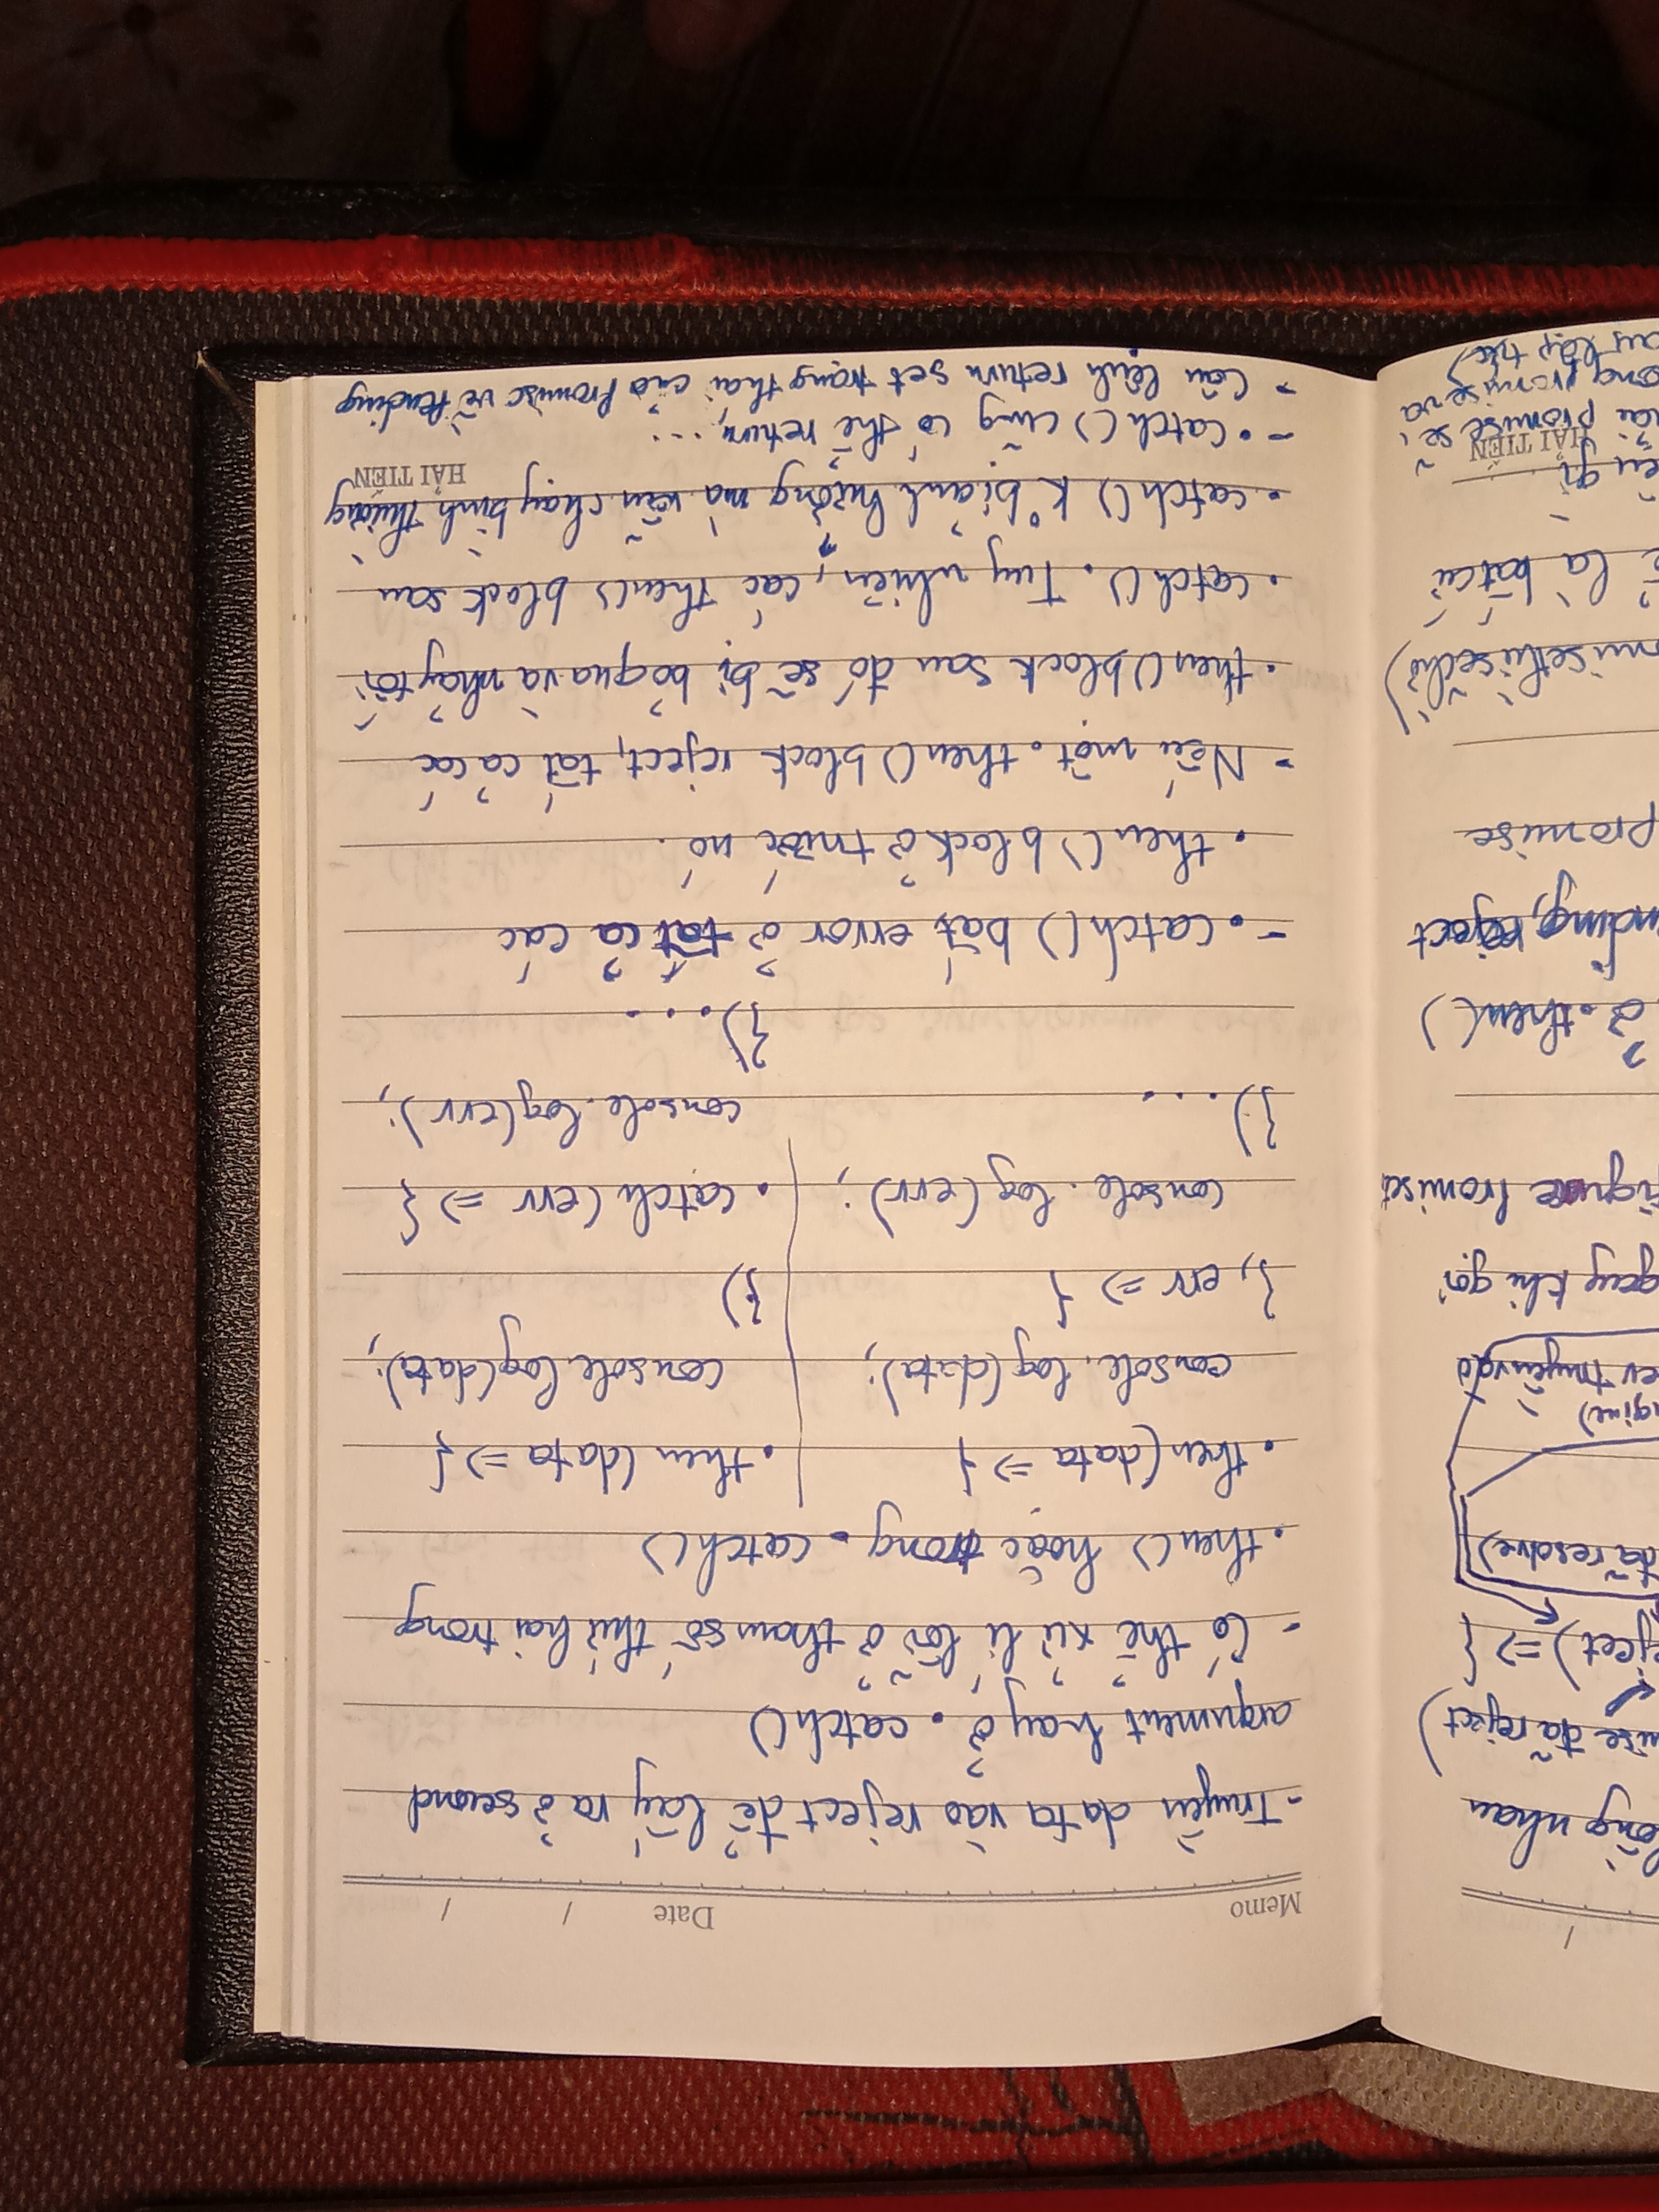 /
lồng nhau
mise đã reject)
eject) => {
đã resolve)
ngine)
ev truyền vào
gay khi gọi
figure Promiset
ở .then()
nding, reject
promise
omise thì sẽ chờ)
ể là bất cứ
êu gì
HẢI TIẾN
ái promise sẽ
ong promise và
au lập tức)
Memo Date / /
- Truyền data vào reject để lấy ra ở second
argument hay ở .catch()
- Có thể xử lí lỗi ở tham số thứ hai trong
.then() hoặc trong .catch()
.then(data => {
console.log(data);
}, err => {
console.log(err);
})...
.then(data => {
console.log(data);
})
.catch(err => {
console.log(err);
})...
- .catch() bắt error ở tất cả các
.then() block ở trước nó.
- Nếu một .then() block reject, tất cả các
.then() block sau đó sẽ bị bỏ qua và nhảy tới
.catch(). Tuy nhiên, các then() block sau
.catch() k° bị ảnh hưởng mà vẫn chạy bình thường
HẢI TIẾN
- .catch() cũng có thể return...
- Câu lệnh return set trạng thái của Promise về Pending